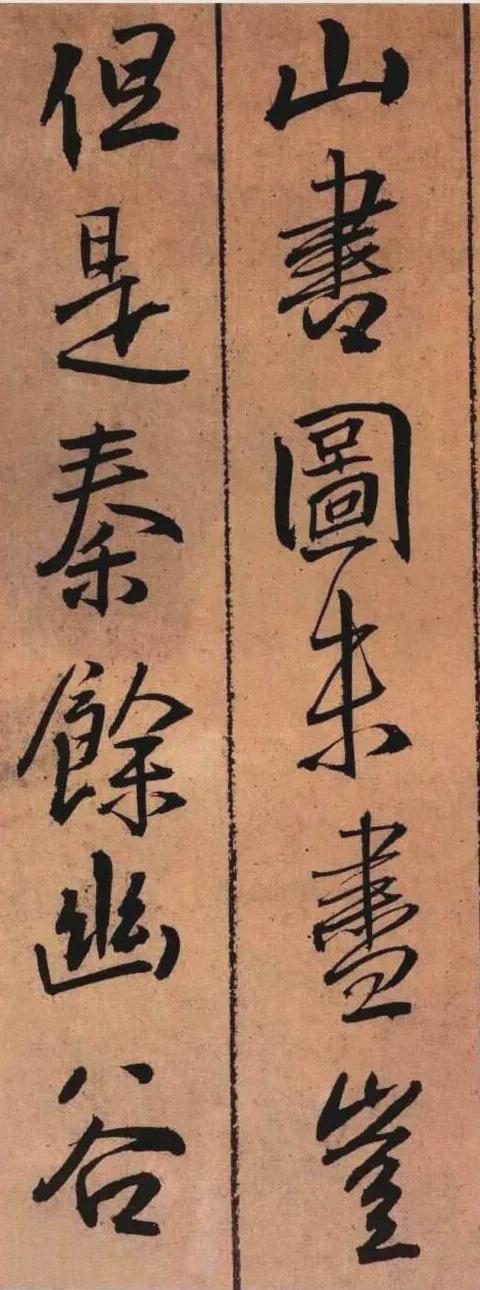 山書圖未盡豈
但是秦餘幽谷